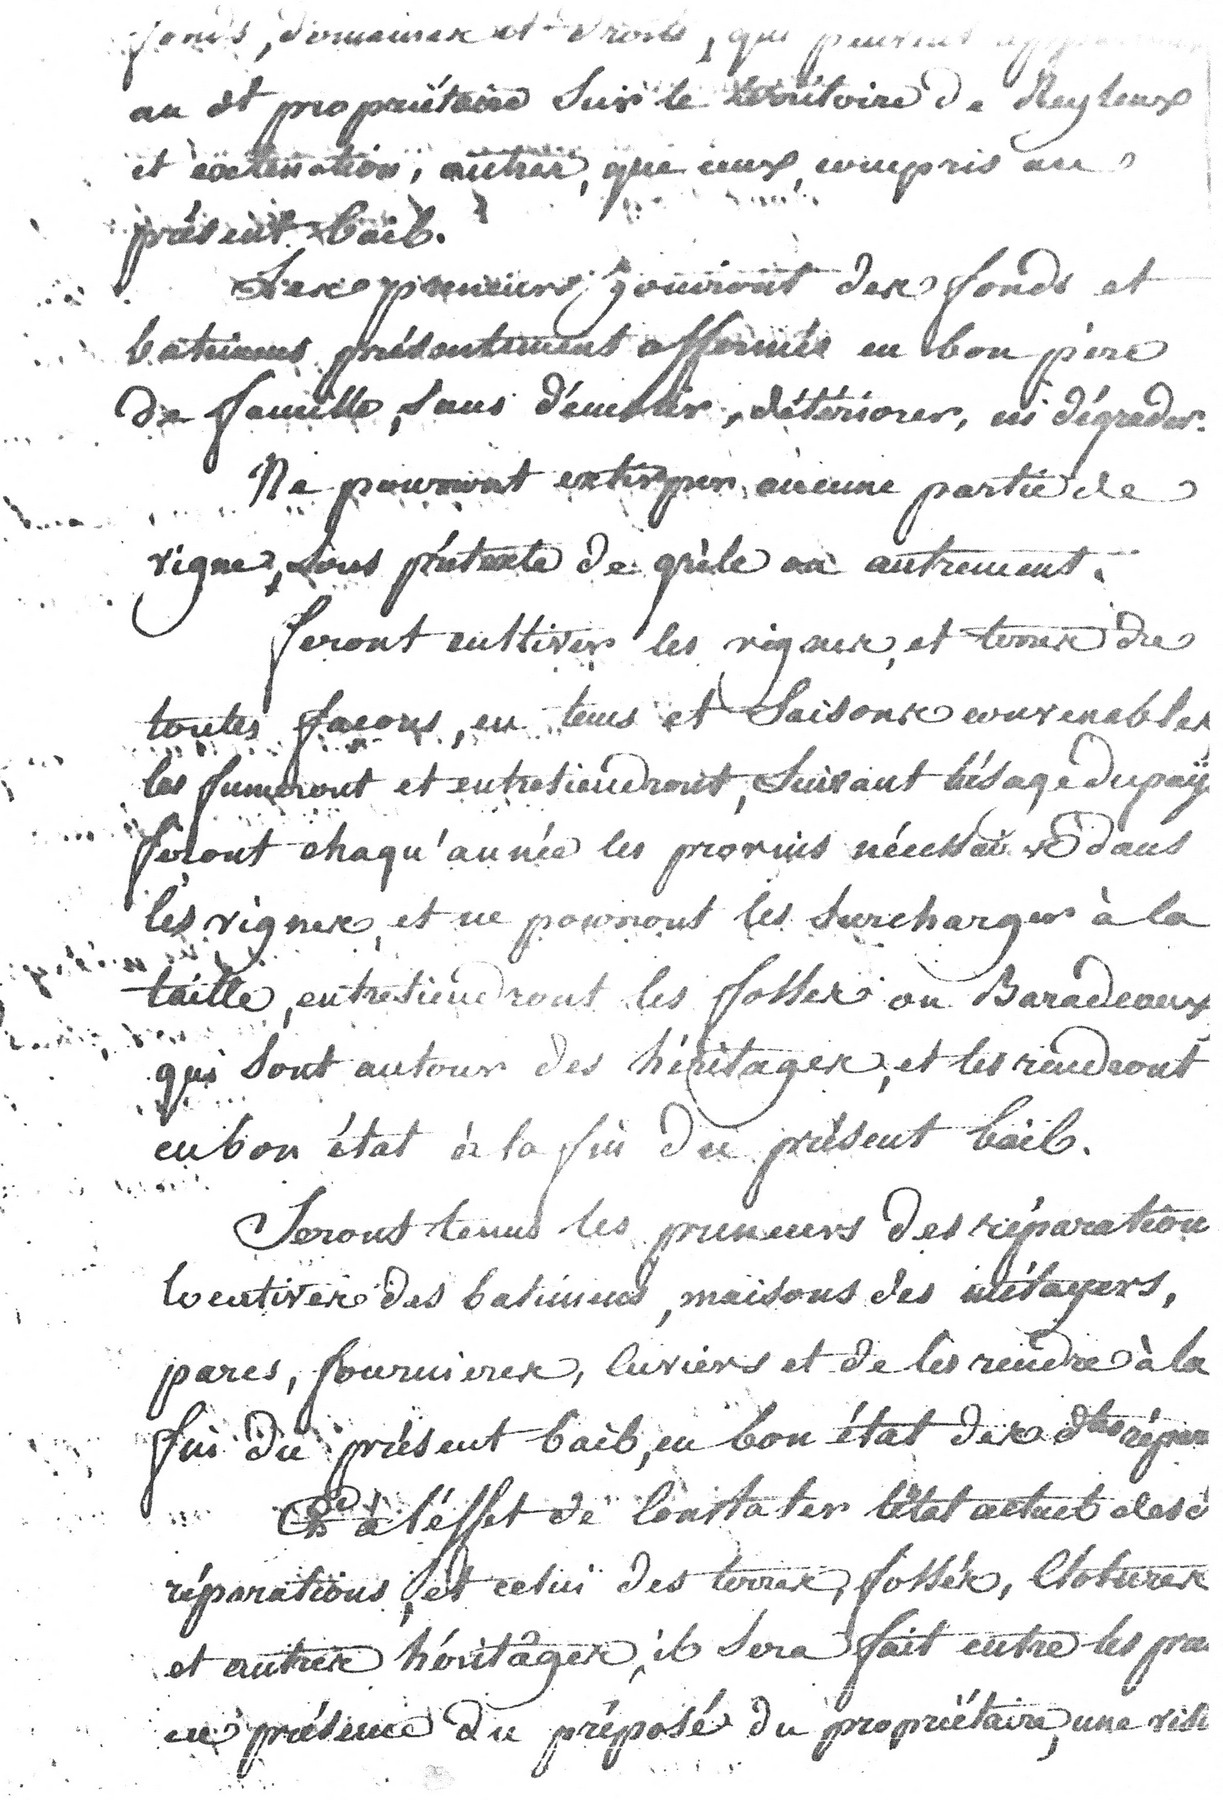 fonds, domaines et droits, que peuvent
au dt propriétaire Sur le térritoire de Neyleux
et extenation, autres, que ceux, compris au
présent bail.
Les preneurs Jouiront des fonds et
batimens présentement affermés en bon père
de famille, Sans démolir, détériorer, ni dégrader.
Ne pourront extirper aucune partie de
vigne, Sous prétexte de grèle ou autrement.
feront cultiver les vignes, et terres de
toutes façons, en tems et Saisons convenables
les fumeront et entretiendront, Suivant l'usage du pays
feront chaqu'année les provins nécéssaires dans
les vignes, et ne pourront les Surcharger à la
taille, entretiendront les fossés ou Baradeaux
qui Sont autour des héritages, et les rendront
en bon état à la fin du présent bail.
Seront tenus les preneurs des réparation
locatives des batimens, maisons des métayers,
parcs, fournieres, cuviers et de les rendre à la
fin du présent bail, en bon état des dtes répara
à l'éffet de Constater l'état actuel des d
réparations, et celui des terres, fossés, Clotures
et autres héritâges, il Sera fait entre les pre
en présence du préposé du propriétaire, une visi